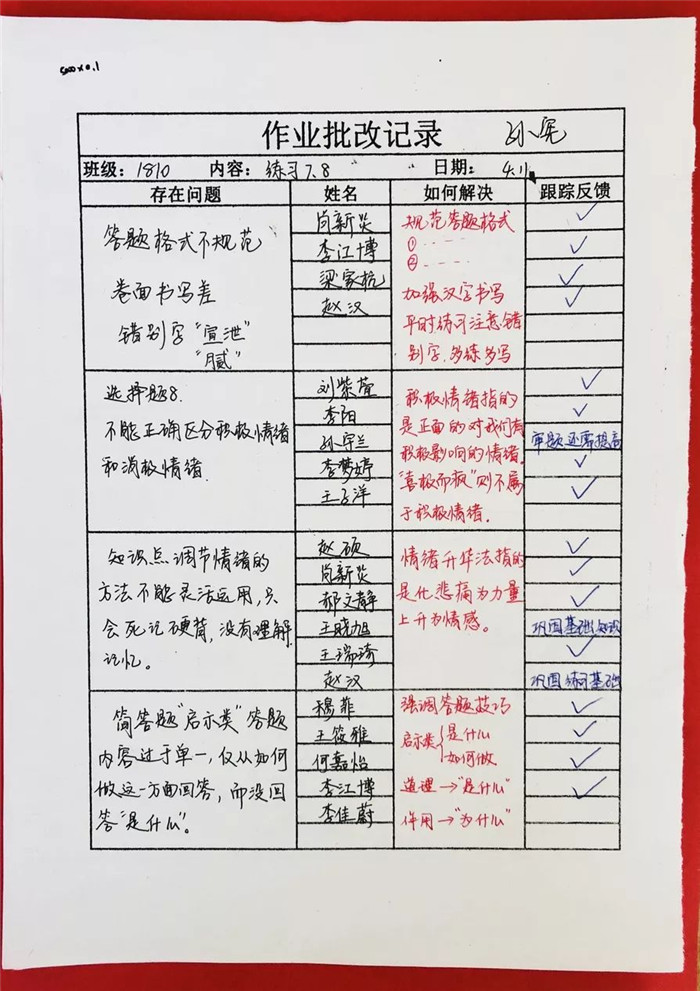 5000×0.1
作业批改记录 孙宪
班级：1810 内容：练习7、8 日期：4.11
存在问题 姓名 如何解决 跟踪反馈
答题格式不规范
卷面书写差
错别字“宣泄”
“腻”
尚新炎
李江博
梁家杭
赵汉
规范答题格式
①
②
加强汉字书写
平时练习注意错
别字,多练多写
选择题8.
不能正确区分积极情绪
和消极情绪.
刘紫萱
李阳
孙宇兰
李梦婷
王子洋
积极情绪指的
是正面的对我们有
积极影响的情绪.
“喜极而疯”则不属
于积极情绪.
审题还需提高
知识点调节情绪的
方法不能灵活运用,只
会死记硬背,没有理解
记忆。
赵硕
尚新炎
郝文静
王晓旭
王瑞琦
赵汉
情绪升华法指的
是化悲痛为力量
上升为情感。
巩固基础知识
巩固练习基础
简答题“启示类”答题
内容过于单一,仅从如何
做这一方面回答,而没回
答“是什么”。
穆菲
王筱雅
何嘉怡
李江博
李佳蔚
强调答题技巧
启示类{是什么
如何做
道理→“是什么”
作用→“为什么”